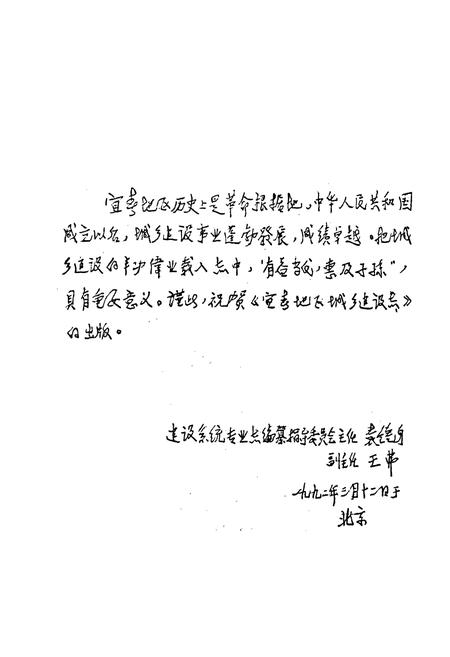 宜春地区历史上是革命根据地，中华人民共和国
成立以后，城乡建设事业蓬勃發展，成绩卓越。把城
乡建设的丰功偉业载入志中，“有益当代，惠及子孫”，
具有重要意义。謹此，祝贺《宜春地区城乡建设志》
的出版。
建设系统专业志编纂指导委员会主任
副主任 王弗
一九九二年三月十二日于
北京